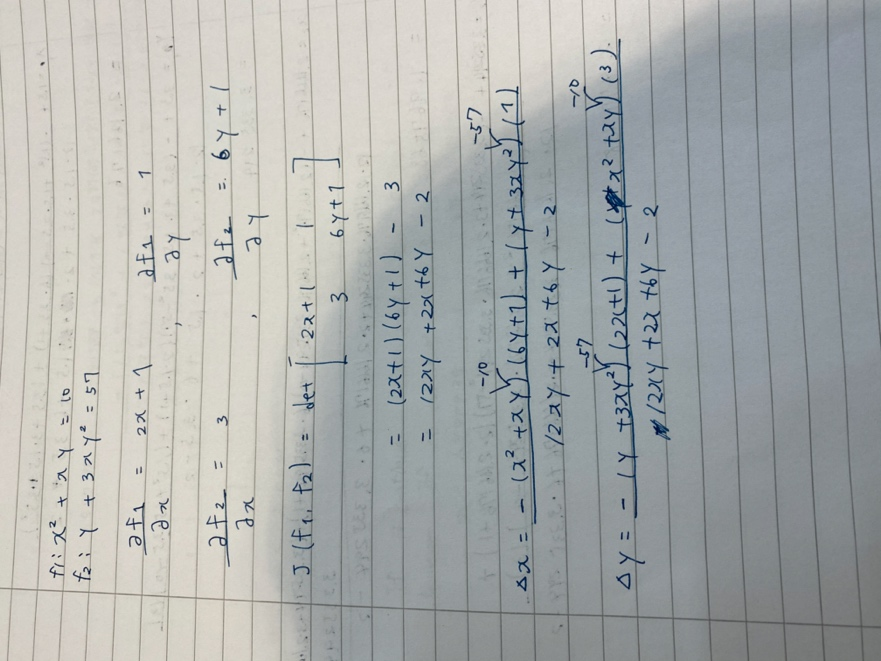 f₁: x² + xy = 10
f₂: y + 3xy² = 57
∂f₁/∂x = 2x + 1 , ∂f₁/∂y = 1
∂f₂/∂x = 3 , ∂f₂/∂y = 6y + 1
J (f₁, f₂) = det [ 2x+1 1
3 6y+1 ]
= (2x+1)(6y+1) - 3
= 12xy + 2x + 6y - 2
-10 -57
Δx = - (x² + xy)(6y+1) + (y + 3xy²)(1)
12xy + 2x + 6y - 2
-57 -10
Δy = - (y + 3xy²)(2x+1) + (x² + xy)(3).
12xy + 2x + 6y - 2